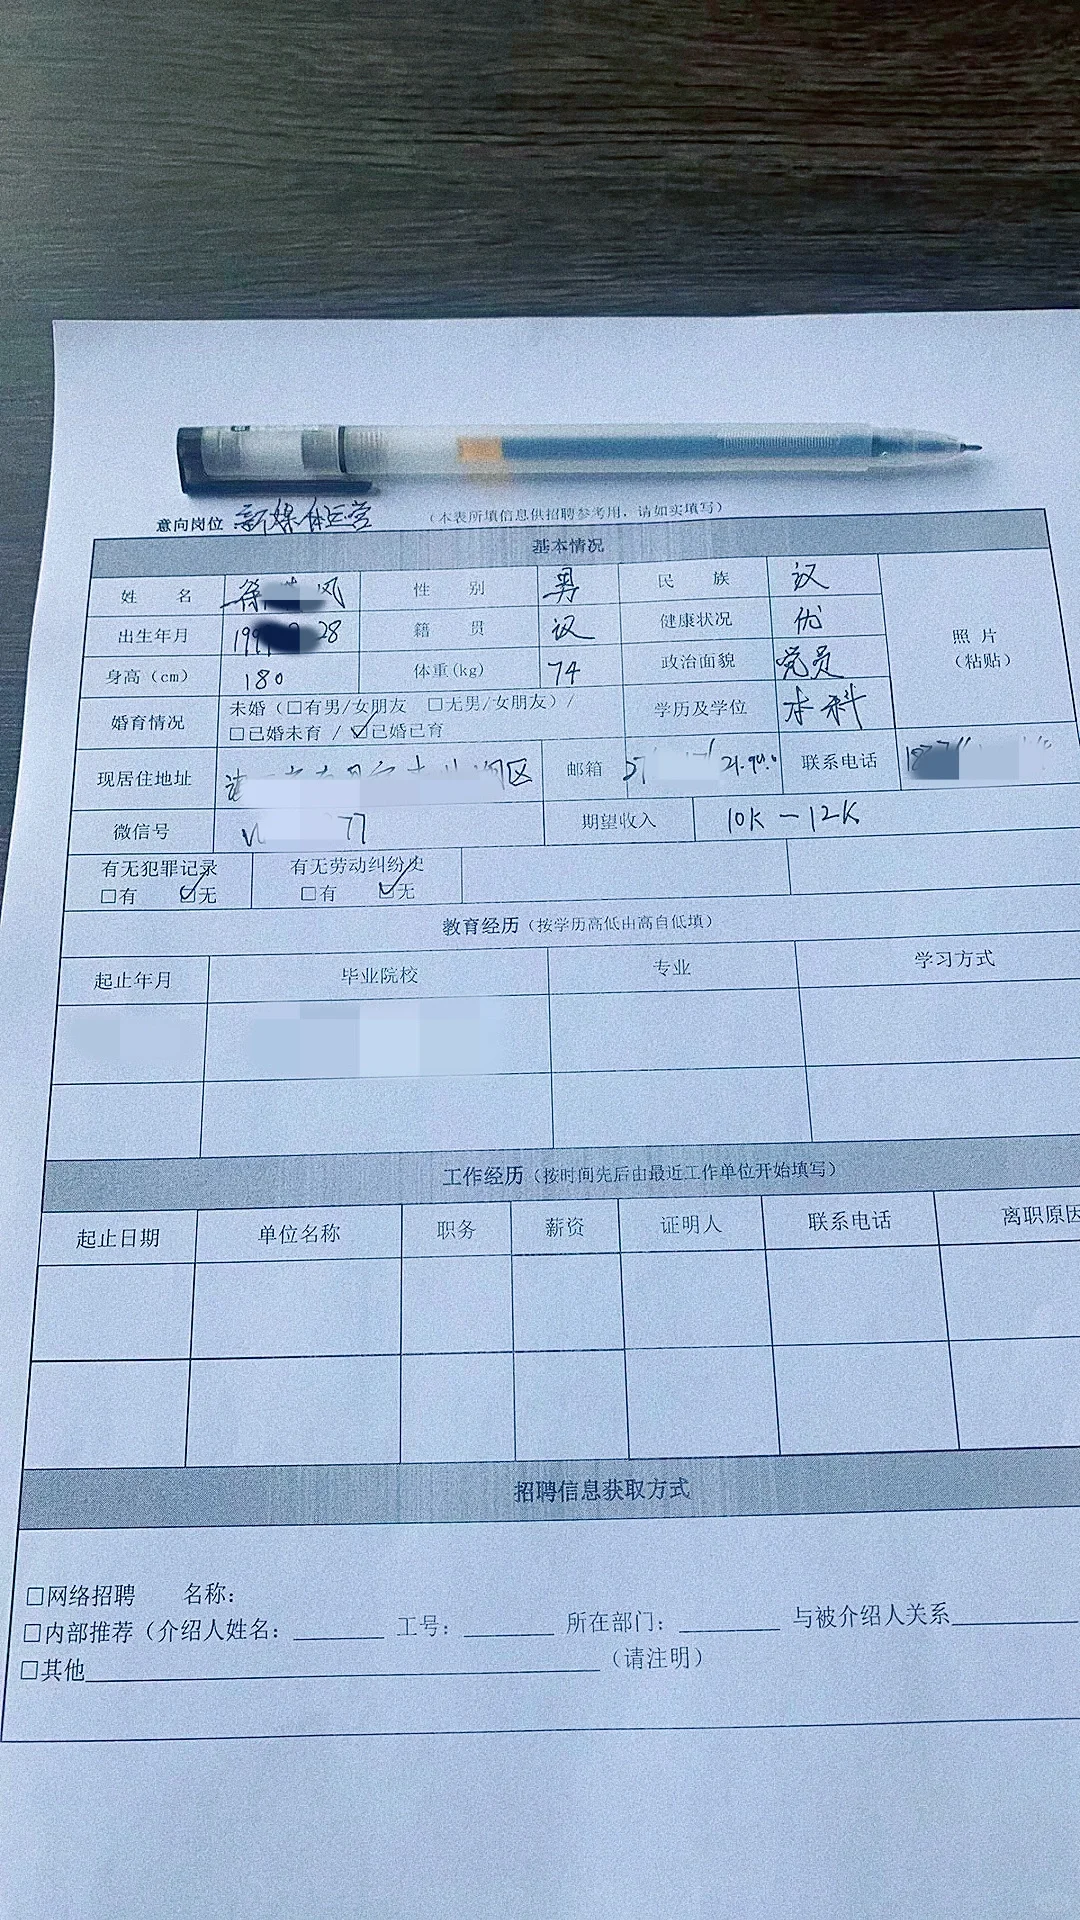 意向岗位 新媒体运营 （本表所填信息供招聘参考用，请如实填写）
基本情况
姓 名 风 性 别 男 民 族 汉
出生年月 199 28 籍 贯 汉 健康状况 优 照 片
（粘贴）
身高（cm） 180 体重(kg) 74 政治面貌 党员
婚育情况 未婚（□有男/女朋友 □无男/女朋友）/ 学历及学位 本科
□已婚未育 / ☑已婚已育
现居住地址 区 邮箱 联系电话
微信号 77 期望收入 10K-12K
有无犯罪记录 有无劳动纠纷史
□有 ☑无 □有 ☑无
教育经历（按学历高低由高自低填）
起止年月 毕业院校 专业 学习方式
工作经历（按时间先后由最近工作单位开始填写）
起止日期 单位名称 职务 薪资 证明人 联系电话 离职原因
招聘信息获取方式
□网络招聘 名称：
□内部推荐（介绍人姓名：_______ 工号：_______ 所在部门：_______ 与被介绍人关系_______
□其他_______（请注明）